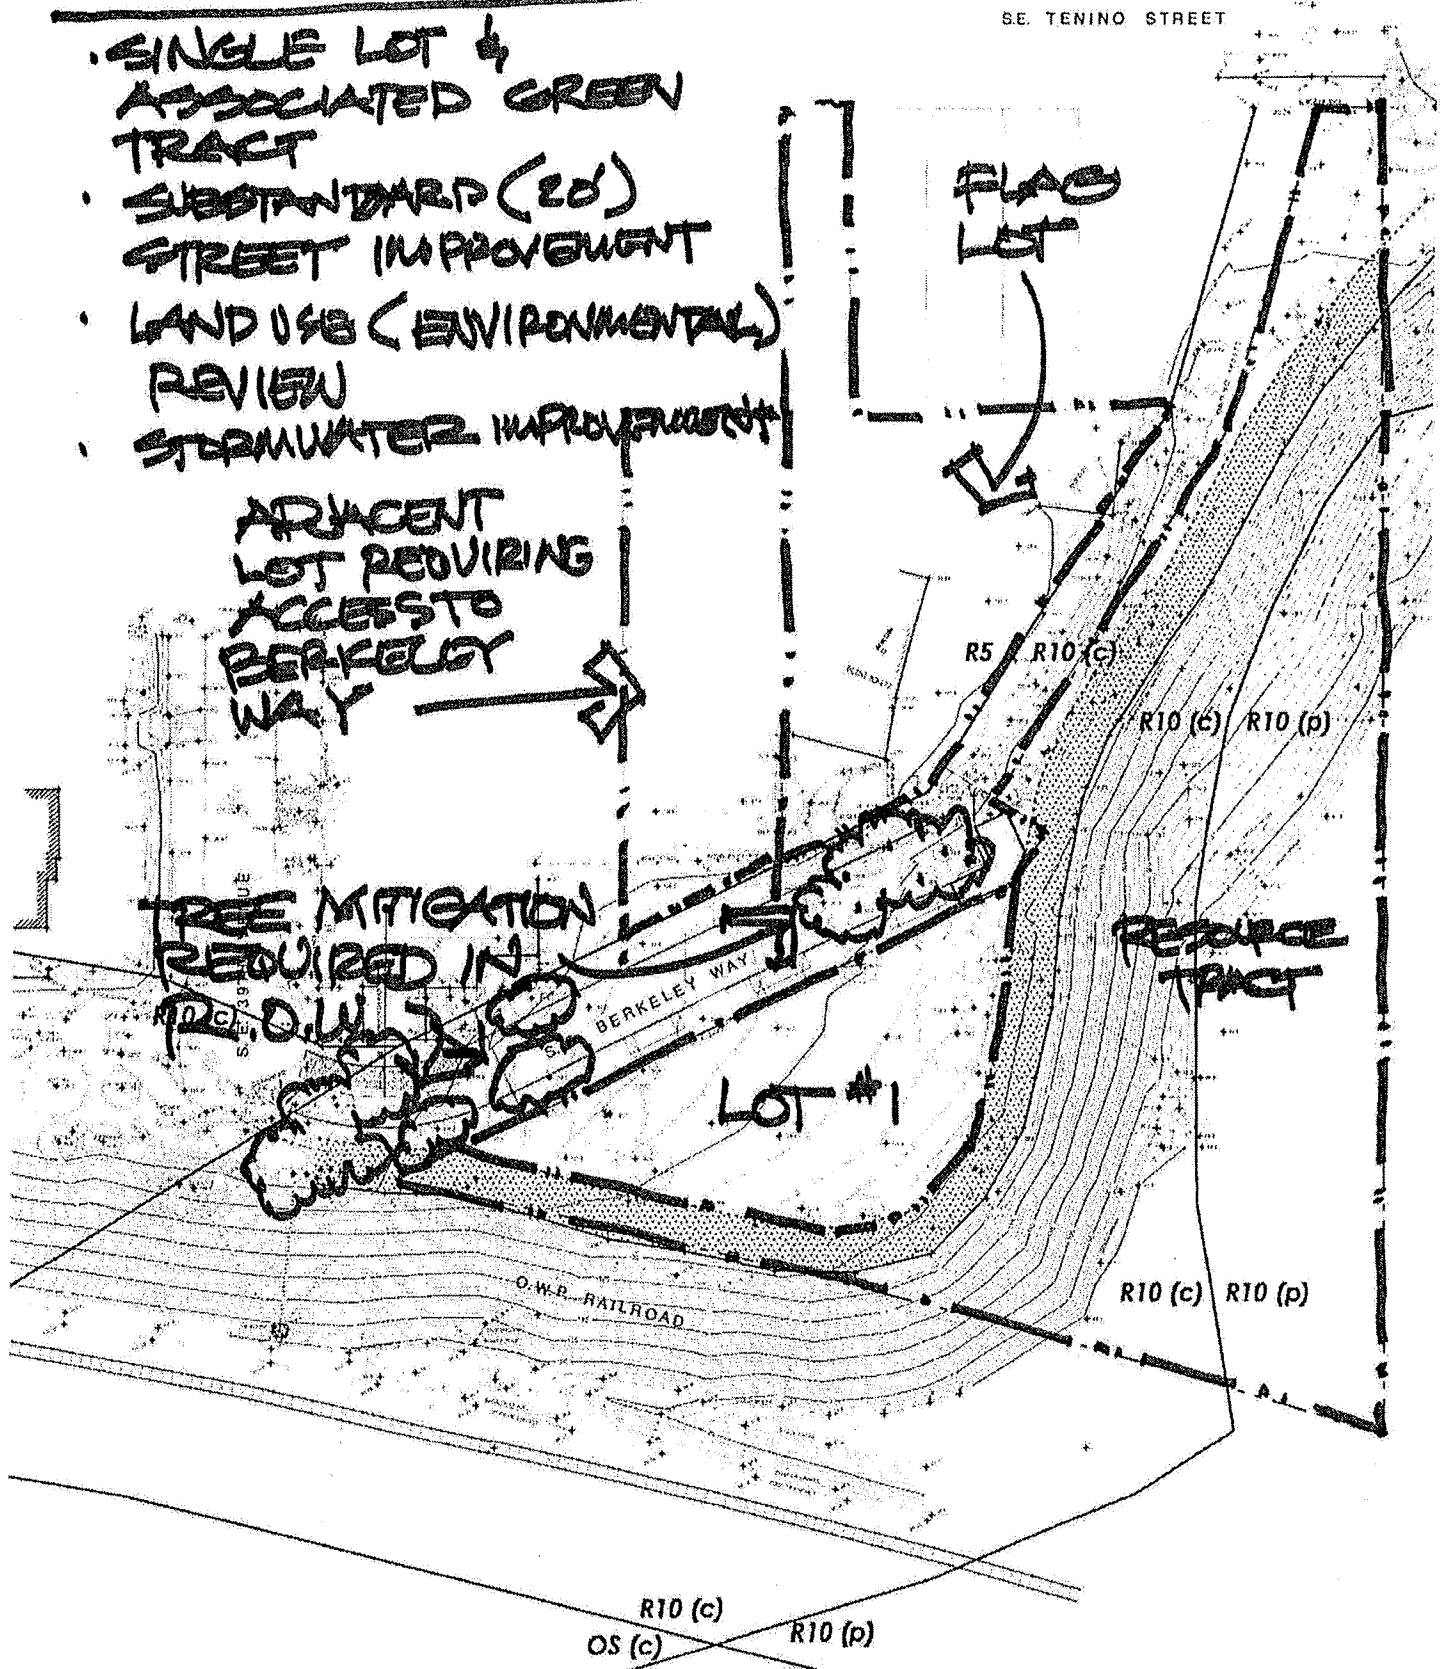 S.E. TENINO STREET
· SINGLE LOT &
ASSOCIATED GREEN
TRACT
· SUBSTANDARD (20')
STREET IMPROVEMENT
· LAND USE (ENVIRONMENTAL)
REVIEW
· STORMWATER IMPROVEMENT
FLAG
LOT
ADJACENT
LOT REQUIRING
ACCESS TO
BERKELEY
WAY
R5 R10 (c)
R10 (c) R10 (p)
TREE MITIGATION
REQUIRED IN
R.O.W.
R10 (c)
BERKELEY WAY
RESOURCE
TRACT
LOT #1
O.W.P. RAILROAD
R10 (c) R10 (p)
R10 (c)
OS (c) R10 (p)